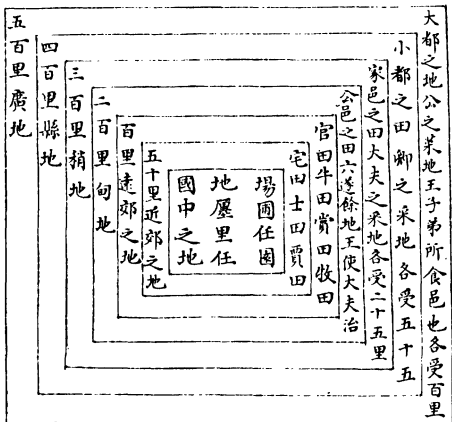 大都之地公之采地王子弟所食邑也各受百里
小都之田卿之采地各受五十五
家邑之田大夫之采地各受二十五里
公邑之田六遂餘地王使大夫治
官田牛田賞田牧田
宅田士田賈田
場圃任園
地廛里任
國中之地
五十里近郊之地
百里遠郊之地
二百里甸地
三百里稍地
四百里縣地
五百里廣地